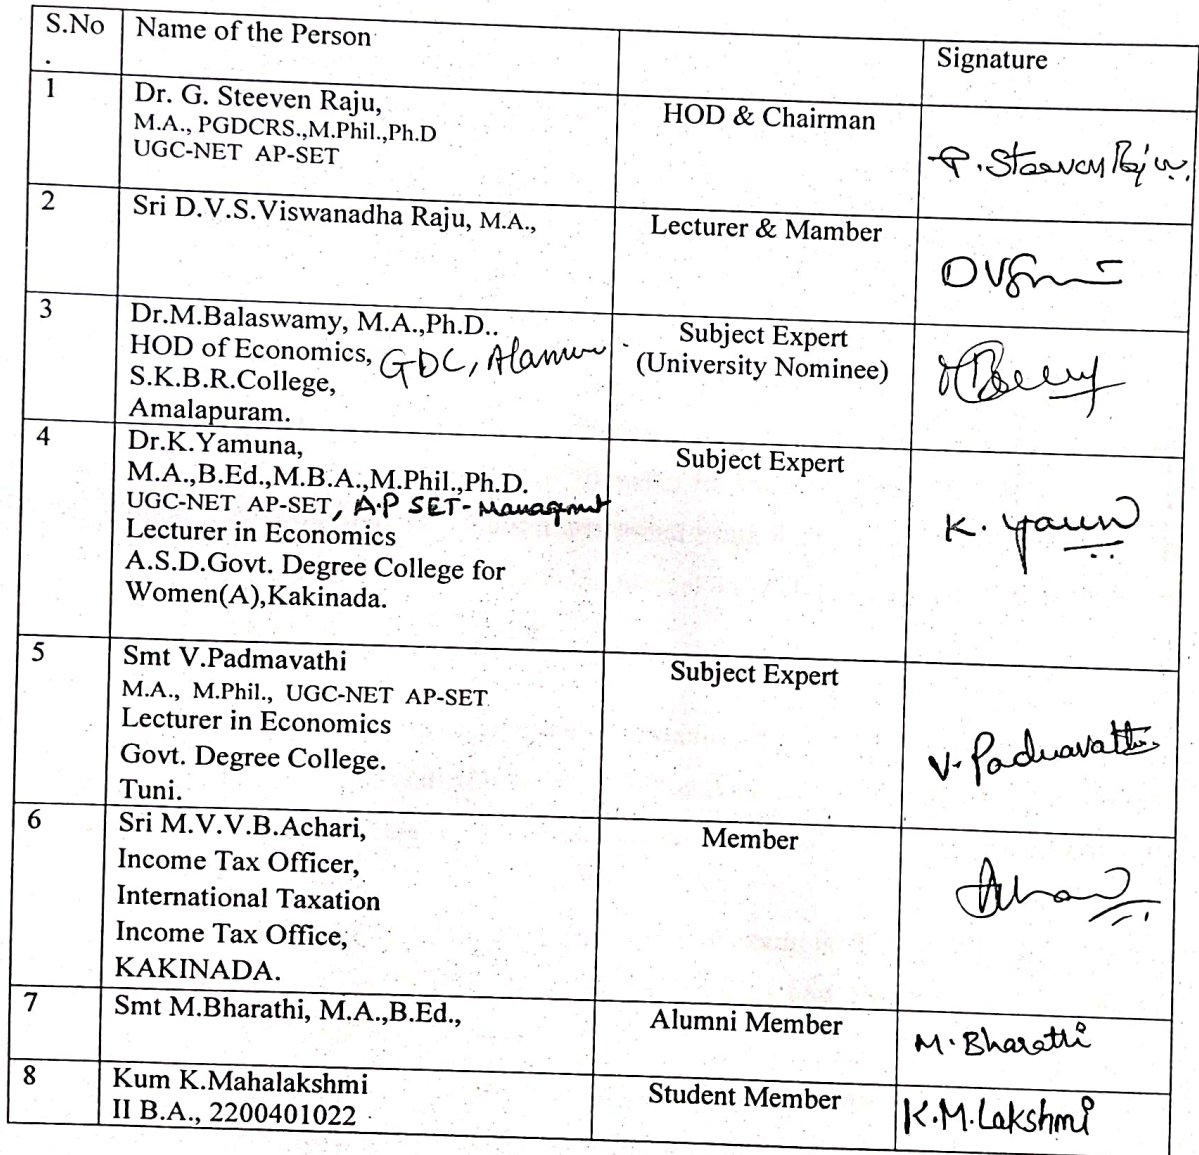 S.No
.
Name of the Person
Signature
1
Dr. G. Steeven Raju,
M.A., PGDCRS.,M.Phil.,Ph.D
UGC-NET AP-SET
HOD & Chairman
G. Steeven Raju.
2
Sri D.V.S.Viswanadha Raju, M.A.,
Lecturer & Mamber
3
Dr.M.Balaswamy, M.A.,Ph.D..
HOD of Economics, GDC,
S.K.B.R.College,
Amalapuram.
Subject Expert
(University Nominee)
4
Dr.K.Yamuna,
M.A.,B.Ed.,M.B.A.,M.Phil.,Ph.D.
UGC-NET AP-SET, A.P SET-Managmnt
Lecturer in Economics
A.S.D.Govt. Degree College for
Women(A),Kakinada.
Subject Expert
K.
5
Smt V.Padmavathi
M.A., M.Phil., UGC-NET AP-SET
Lecturer in Economics
Govt. Degree College.
Tuni.
Subject Expert
V. Padmavathi
6
Sri M.V.V.B.Achari,
Income Tax Officer,
International Taxation
Income Tax Office,
KAKINADA.
Member
7
Smt M.Bharathi, M.A.,B.Ed.,
Alumni Member
M. Bharathi
8
Kum K.Mahalakshmi
II B.A., 2200401022
Student Member
K.M.Lakshmi